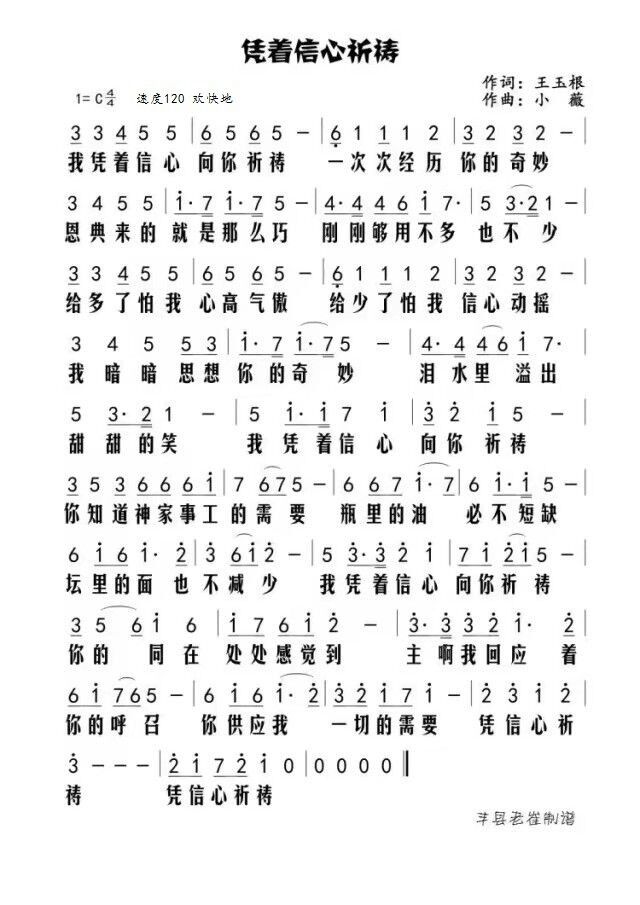 凭着信心祈祷
作词：王玉根
1=C4/4 速度120 欢快地 作曲：小 薇
3 3 4 5 5 | 6 5 6 5 − | 6 1 1 1 2 | 3 2 3 2 − |
我凭着信心 向你祈祷 一次次经历 你的奇妙
3 4 5 5 | i· 7 i· 7 5 − | 4· 4 4 6 i 7· | 5 3·2 1 − |
恩典来的 就是那么巧 刚刚够用不多 也不少
3 3 4 5 5 | 6 5 6 5 − | 6 1 1 1 2 | 3 2 3 2 − |
给多了怕我 心高气傲 给少了怕我 信心动摇
3 4 5 5 3 | i· 7 i· 7 5 − | 4· 4 4 6 i 7· |
我 暗暗思想你的奇妙 泪水里溢出
5 3· 2 1 − | 5 i· i 7 i | 3 2 i 5 − |
甜甜的笑 我凭着信心 向你祈祷
3 5 3 6 6 6 i | 7 6 7 5 − | 6 6 7 i· 7 | 6 i· i 5 − |
你知道神家事工的需要 瓶里的油 必不短缺
6 i 6 i· 2 | 3 6 i 2 − | 5 3· 3 2 i | 7 i 2 i 5 − |
坛里的面也不减少 我凭着信心 向你祈祷
3 5 6 i 6 | i 7 6 i 2 − | 3· 3 3 2 i· 2 |
你的 同在 处处感觉到 主啊我回应着
6 i 7 6 5 − | 6 i 6 i· 2 | 3 2 i 7 i − | 2 3 i 2 |
你的呼召 你供应我 一切的需要 凭信心祈
3 − − − | 2 i 7 2 i 0 | 0 0 0 0 ‖
祷 凭信心祈祷
丰县老崔制谱